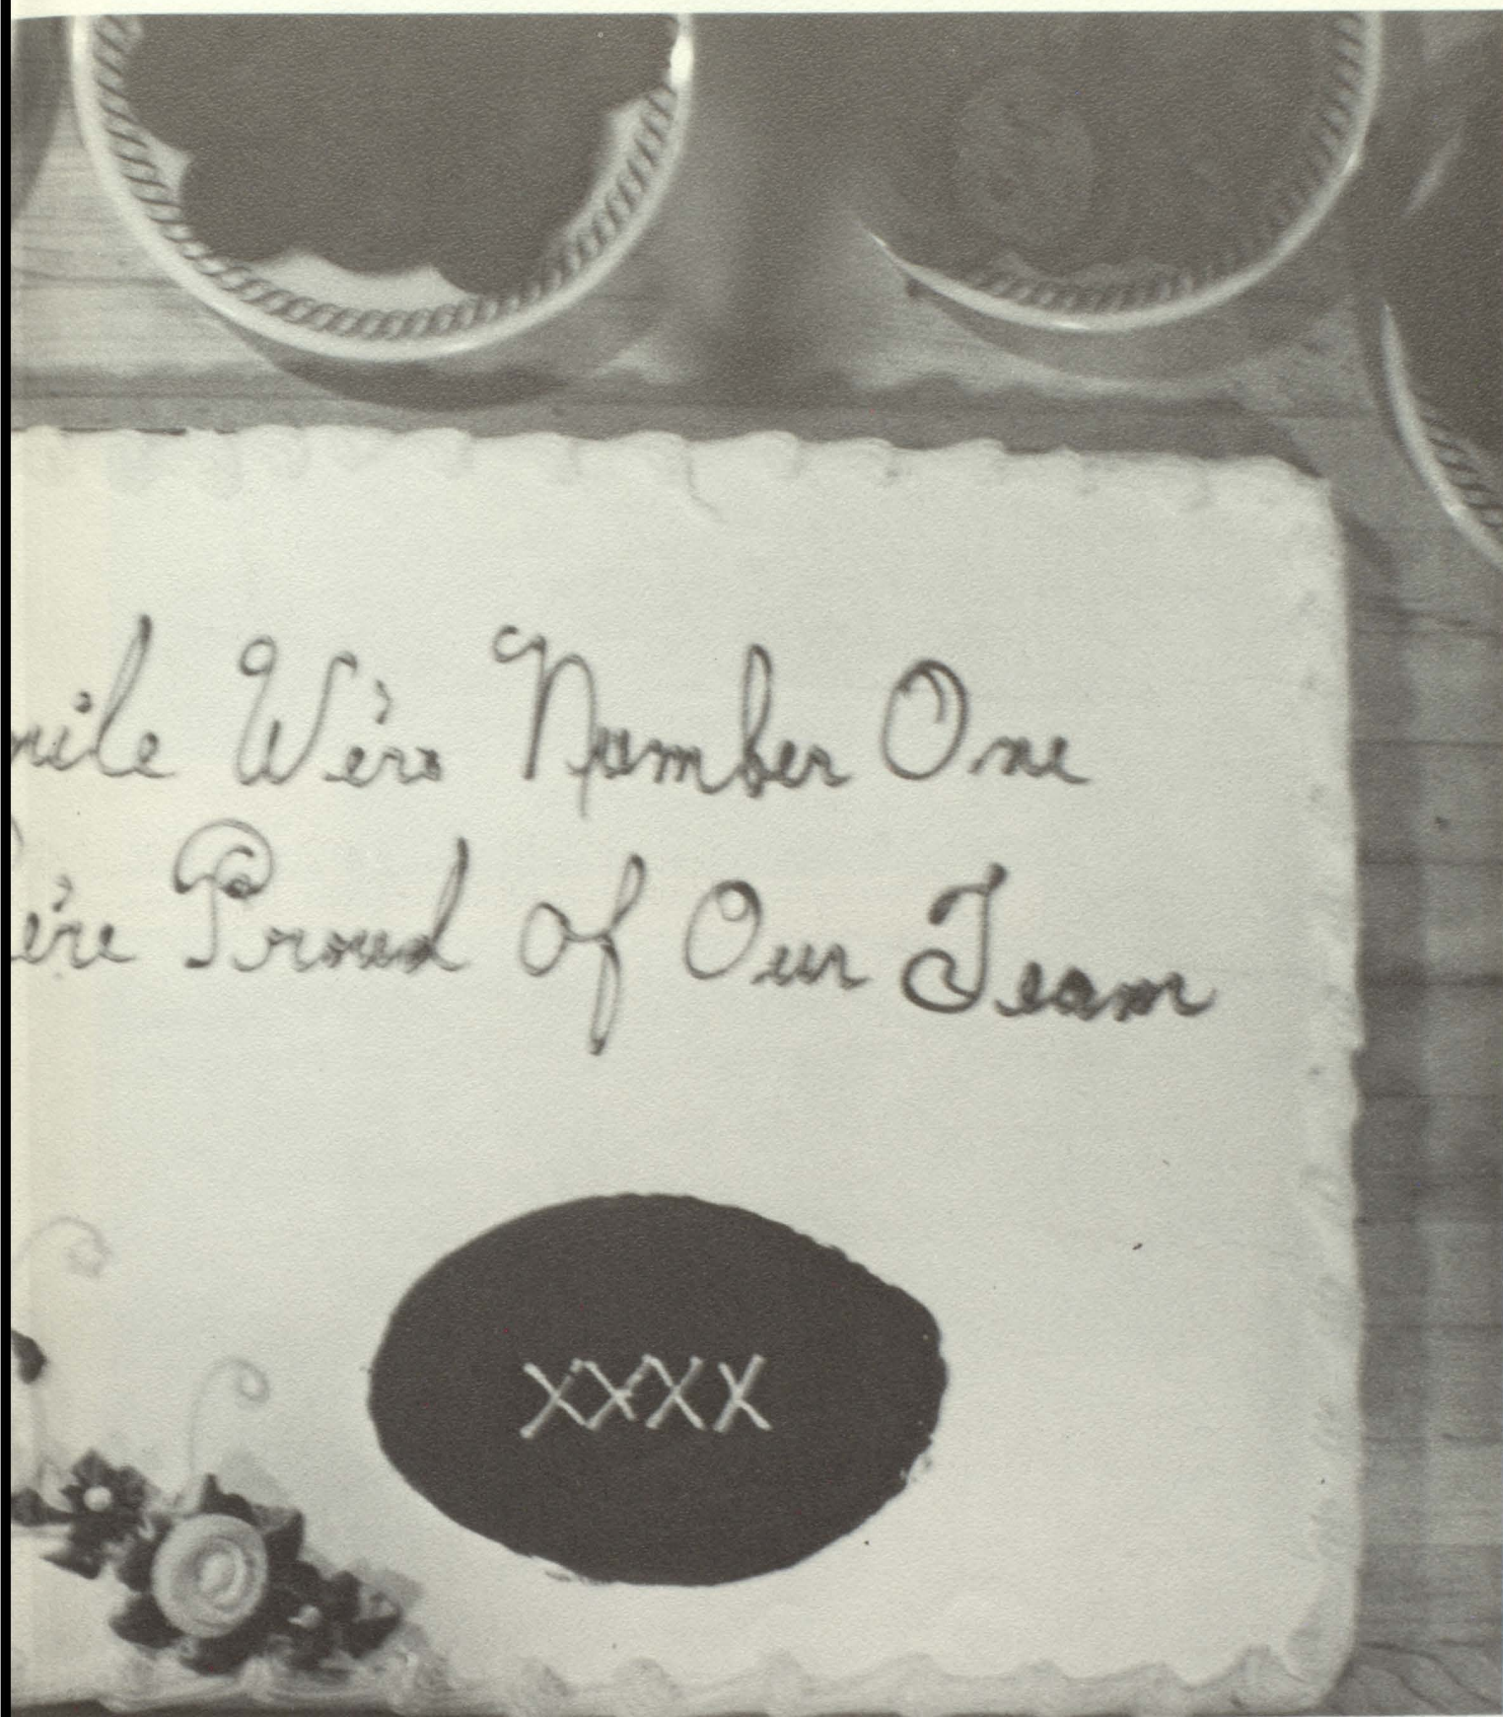 mile We're Number One
e're Proud of Our Team
XXXX